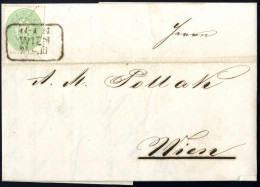 WIEN
Herrn
A. M. Pollak
Wien